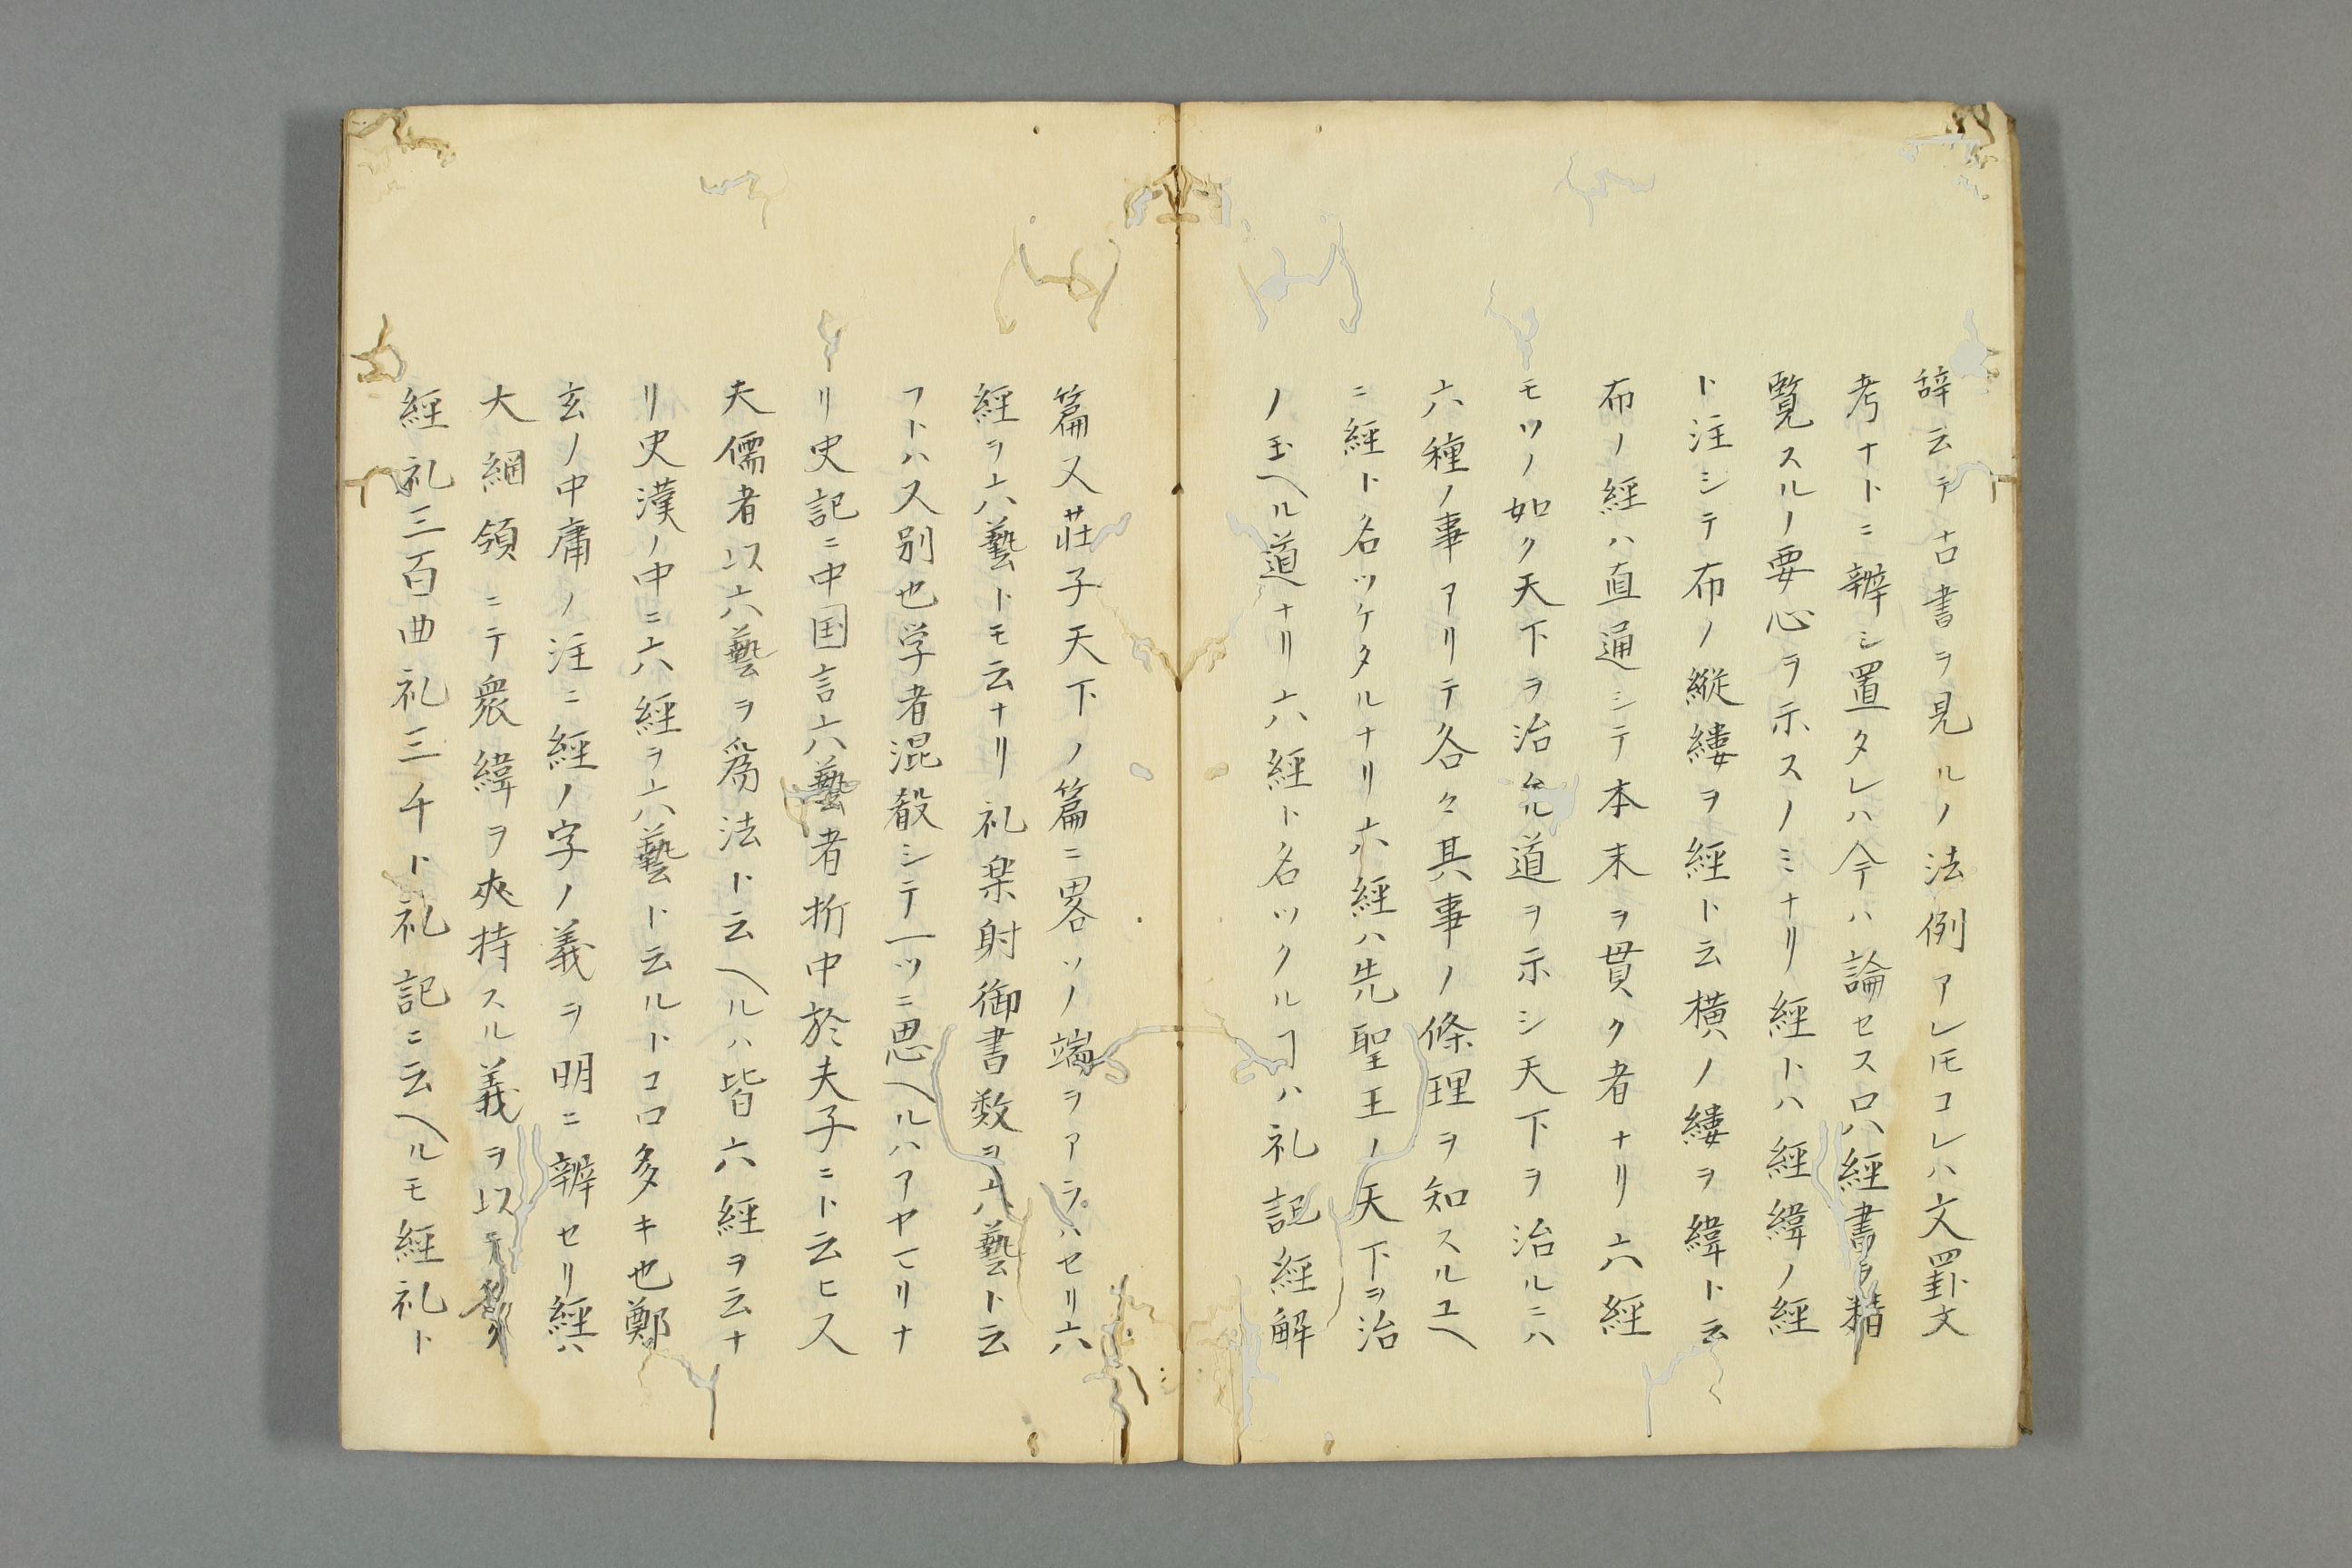 辞云テ古書ヲ見ルノ法例アレ𪜈コレハ文罫文
考ナトニ辨シ置タレハ今ハ論セス只經書ヲ精
覧スルノ要心ヲ示スノミナリ經トハ經緯ノ經
ト注シテ布ノ縦縷ヲ經ト云横ノ縷ヲ緯ト云
布ノ經ハ直通シテ本末ヲ貫ク者ナリ六經
モソノ如ク天下ヲ治允ル道ヲ示シ天下ヲ治ルニハ
六種ノ事アリテ各々其事ノ條理ヲ知スルユヘ
ニ經ト名ツケタルナリ六經ハ先聖王ノ天下ヲ治
ノ玉ヘル道ナリ六經ト名ツクルヿハ礼記經解
篇又荘子天下ノ篇ニ畧ソノ端ヲアラハセリ六
經ヲ六藝トモ云ナリ礼楽射御書数ヲ六藝ト云
フトハ又別也学者混殽シテ一ツニ思ヘルハアヤマリナ
リ史記ニ中国言六藝者折中於夫子ニト云ヒ又
夫儒者以六藝ヲ爲法ト云ヘルハ皆六經ヲ云ナ
リ史漢ノ中ニ六經ヲ六藝ト云ルトコロ多キ也鄭
玄ノ中庸ノ注ニ經ノ字ノ義ヲ明ニ辨セリ經ハ
大綱領ニテ衆緯ヲ夾持スル義ヲ以テ名ク
經礼三百曲礼三千ト礼記ニ云ヘルモ經礼ト